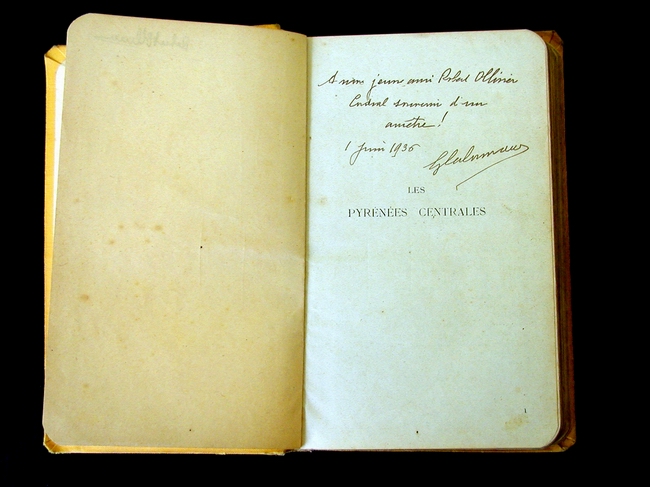 A mon jeune ami Robert Ollivier
Cordial souvenir d'un
ancêtre !
1 Juin 1936
LES
PYRÉNÉES CENTRALES
1